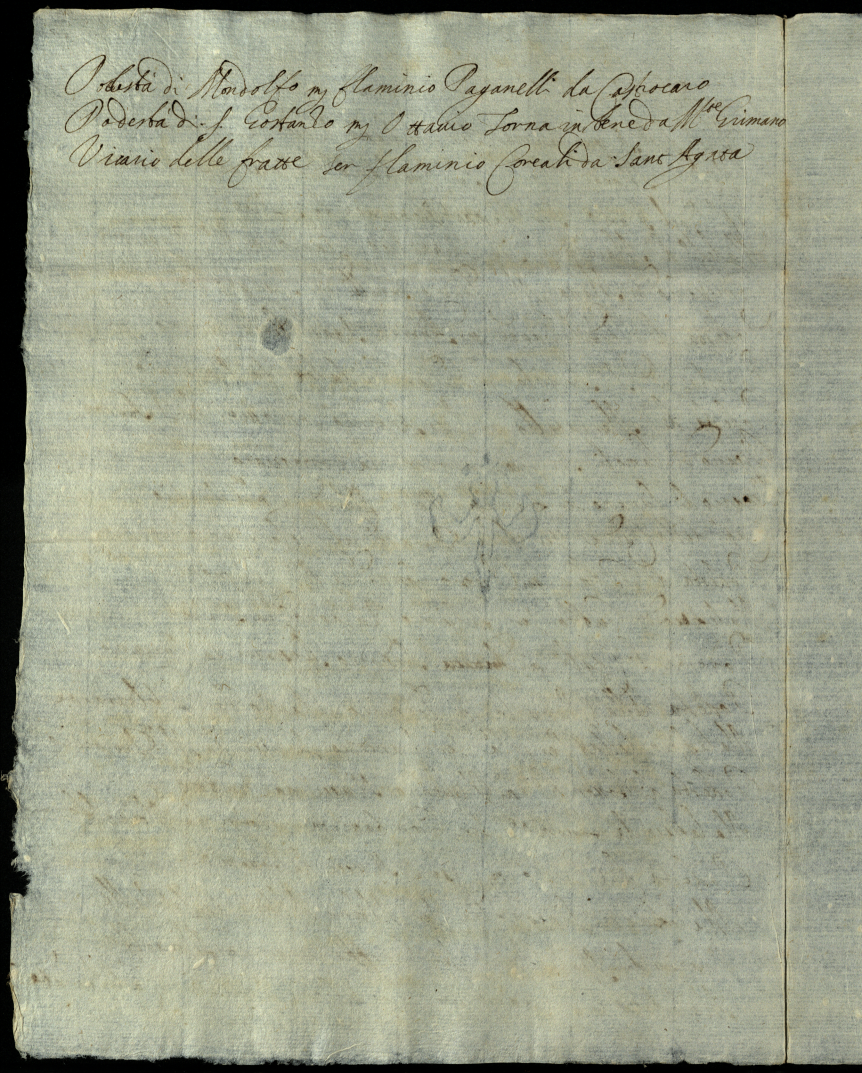 Podestà di Mondolfo mʒ flaminio Paganelli da Castrocaro
Podestà di S. Gostanzo mʒ Ottavio Tornainbene da M.te Grimano
Vicario delle fratte Ser flaminio Coreali da Sant Agata